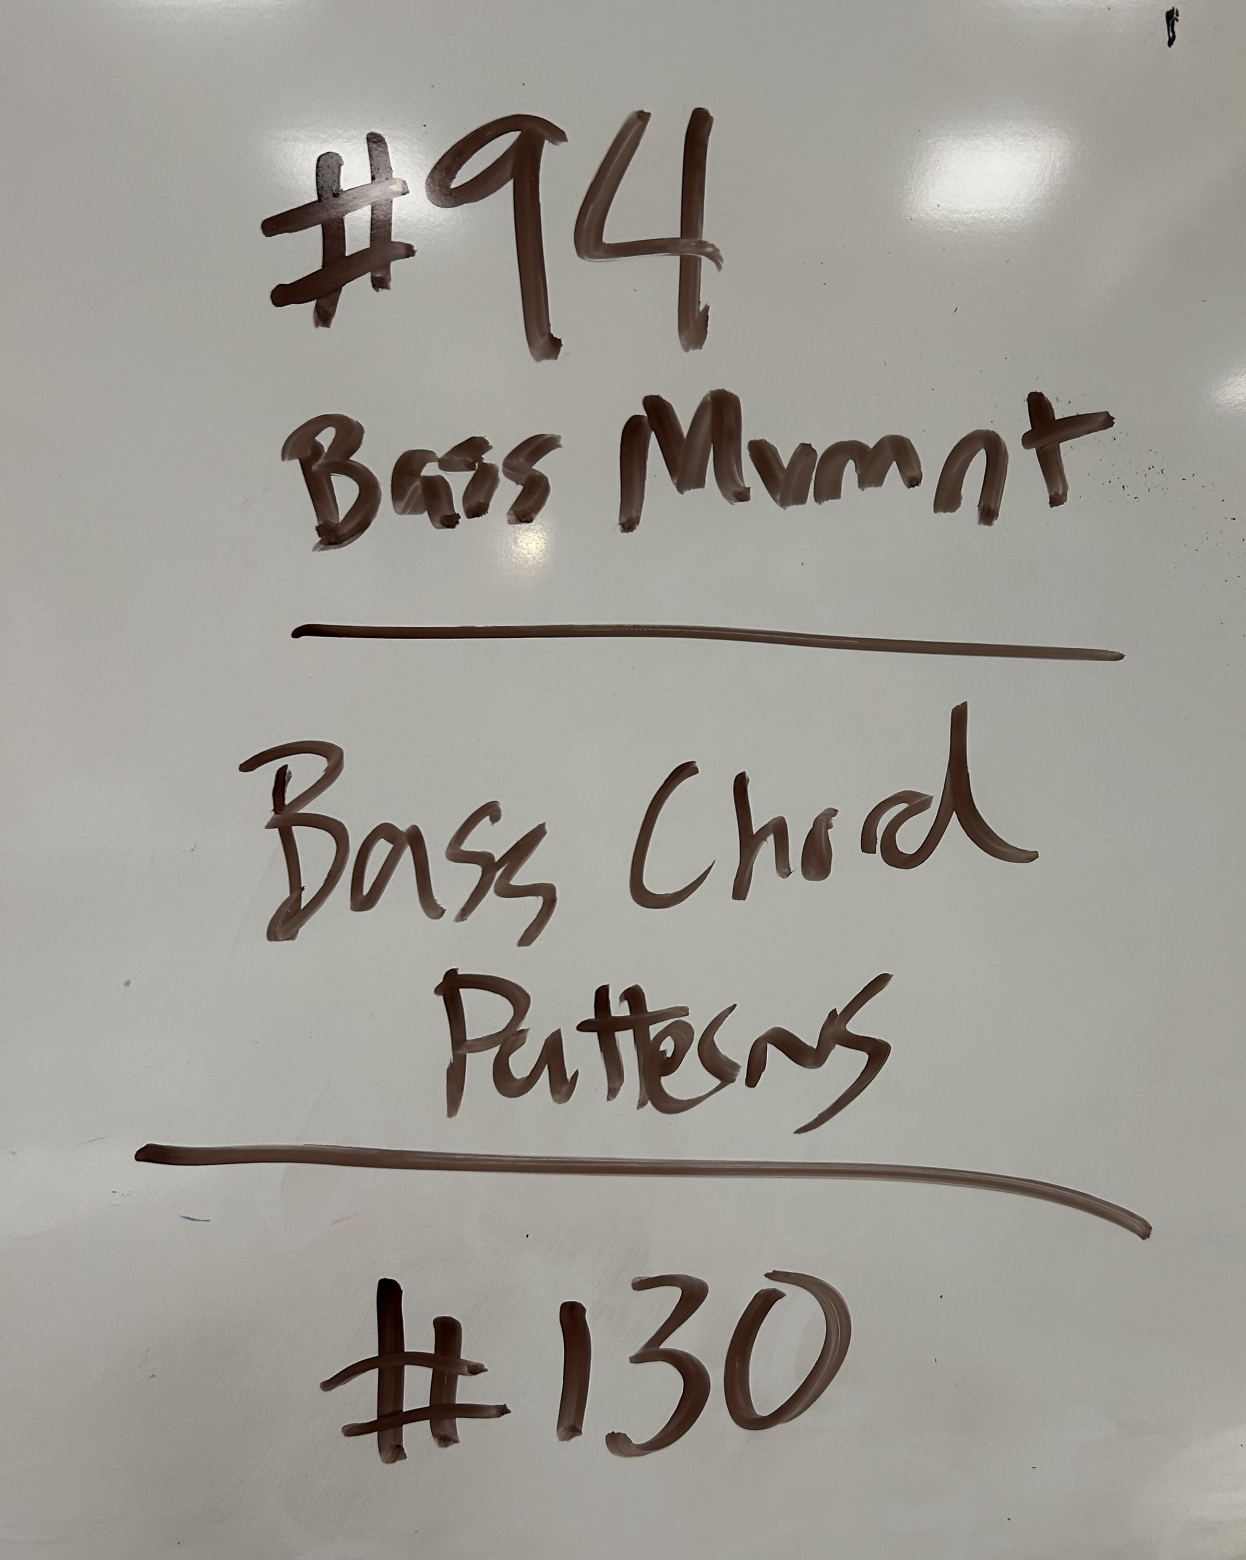 #94
Bass Mvmnt
Bass Chord
Patterns
#130